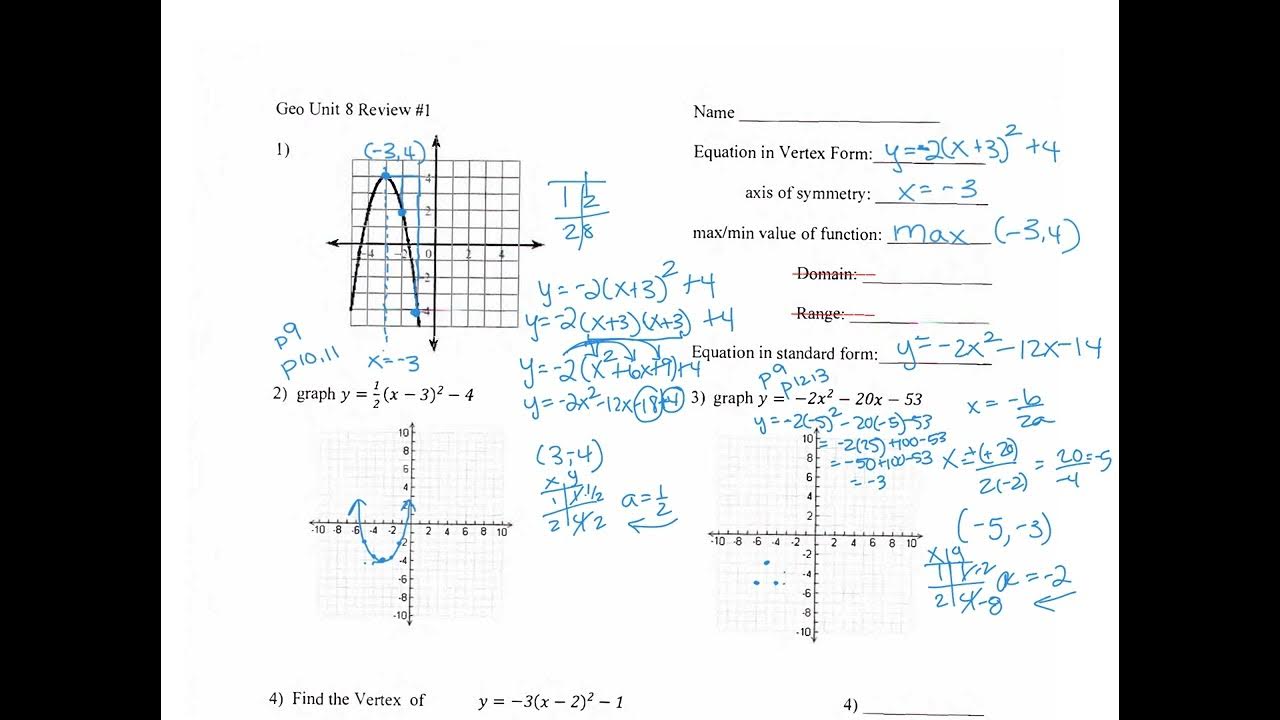 Geo Unit 8 Review #1
Name
1)
(-3,4)
4
2
-4
-2
0
2
4
-2
-4
x=-3
p9
p10,11
1 | 2
2 | 8
y=-2(x+3)²+4
y=-2(x+3)(x+3)+4
y=-2(x²+6x+9)+4
y=-2x²-12x-18+4
Equation in Vertex Form: y=-2(x+3)²+4
axis of symmetry: x=-3
max/min value of function: max (-3,4)
Domain:
Range:
Equation in standard form: y=-2x²-12x-14
2) graph y = ½(x − 3)² − 4
10
8
6
4
2
-10 -8 -6 -4 -2 2 4 6 8 10
-2
-4
-6
-8
-10
(3,-4)
x | y
1 | 1 1/2
2 | 4 2
a=1/2
p9
p12,13
3) graph y = −2x² − 20x − 53
y=-2(-5)²-20(-5)-53
=-2(25)+100-53
=-50+100-53
=-3
x=-b/2a
20/-4=-5
(-5,-3)
x | y
1 | 1 -2
2 | 4 -8
a=-2
10
8
6
4
2
-10 -8 -6 -4 -2 2 4 6 8 10
-2
-4
-6
-8
-10
4) Find the Vertex of y = −3(x − 2)² − 1
4)